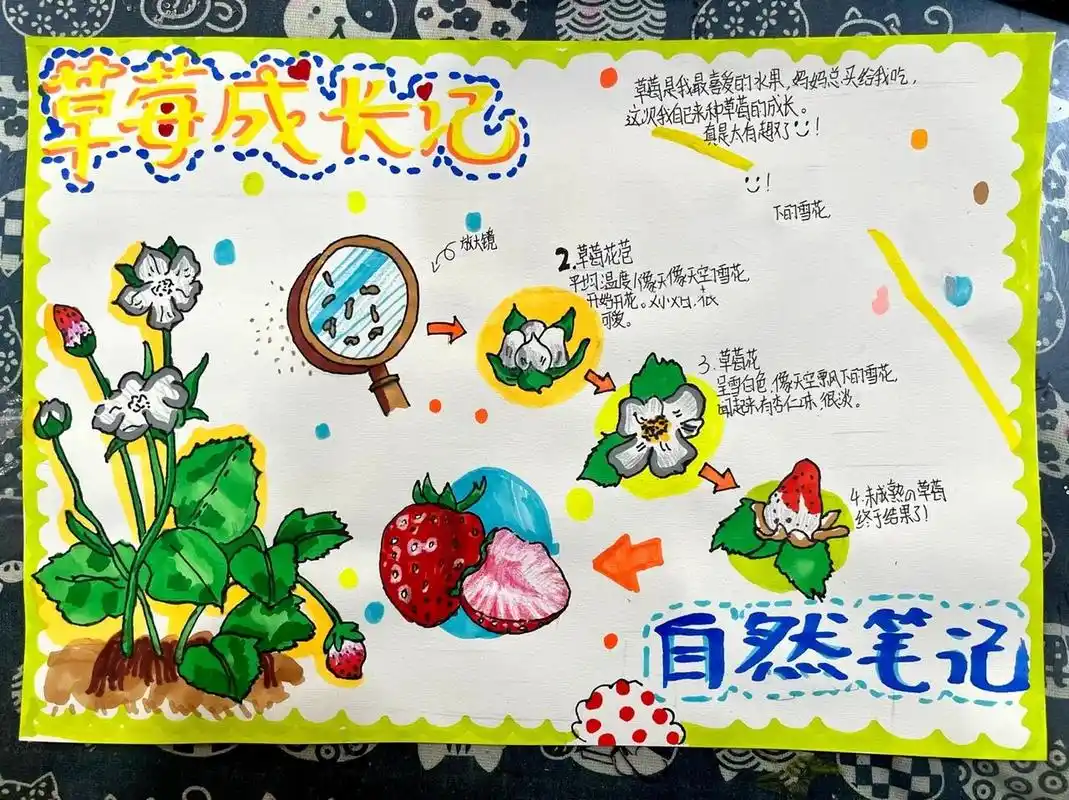 草莓成长记
草莓是我最喜爱的水果,妈妈总买给我吃,
这次我自己来种草莓的成长。
真是太有趣了!
!
下的雪花,
放大镜
2.草莓花苞
平均温度
开始开花。
可爱。
3.草莓花
呈雪白色,像天空飘下的雪花,
闻起来有杏仁味,很淡。
4.未成熟の草莓
终于结果了!
自然笔记